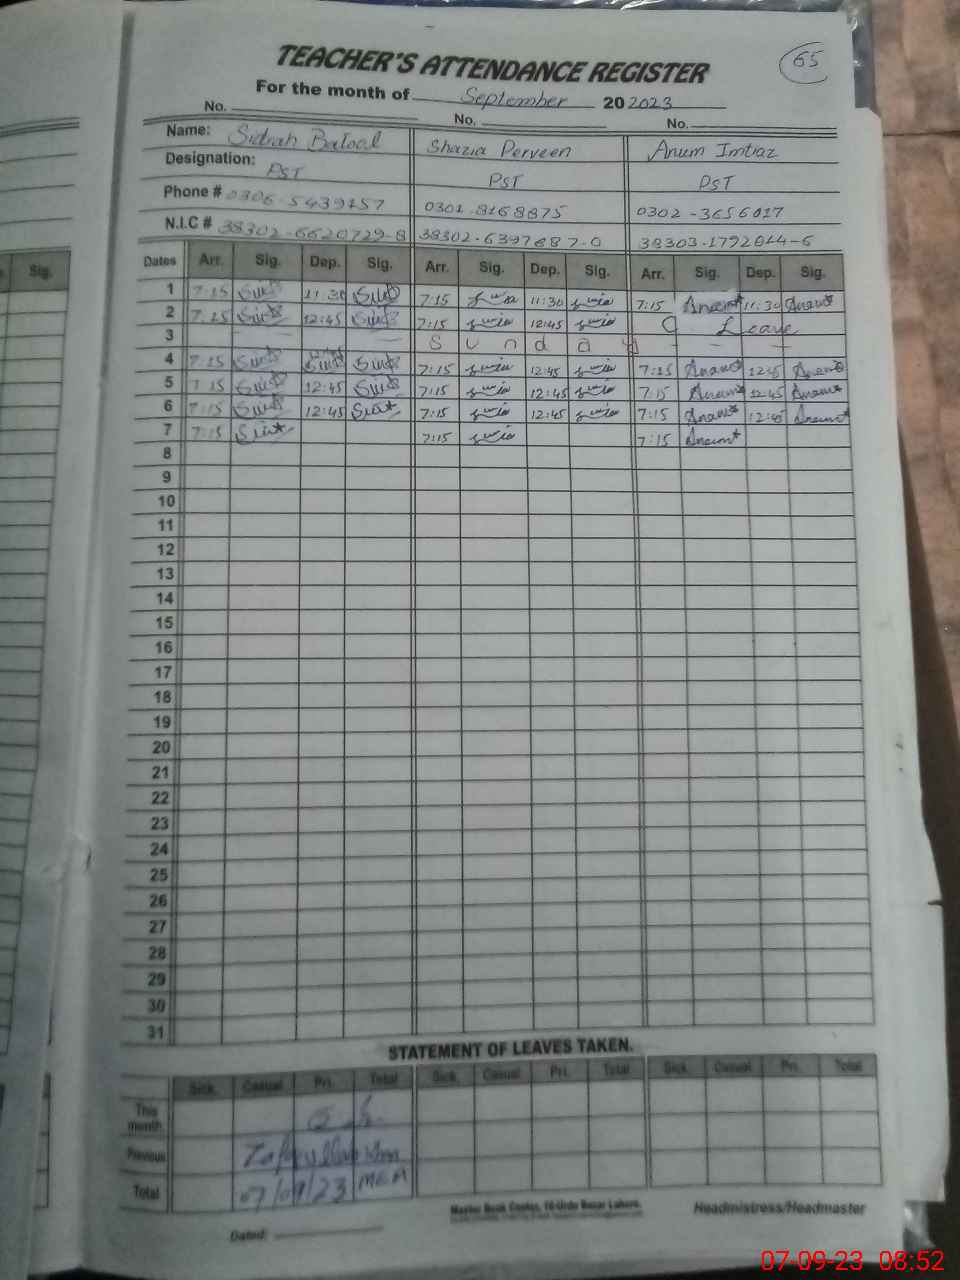 65
TEACHER'S ATTENDANCE REGISTER
For the month of September 20 2023
No. No. No.
Name: Sidrah Batool Shazia Perveen Anum Imtiaz
Designation: PST PST PST
Phone # 0306-5439157 0301-8168875 0302-3656017
N.I.C # 38302-6620729-8 38302-6397687-0 38303-1792014-6
Dates Arr. Sig. Dep. Sig. Arr. Sig. Dep. Sig. Arr. Sig. Dep. Sig.
Sig.
1 7:15 11:30 7:15 11:30 7:15 11:30
2 7:15 12:45 7:15 12:45 C Leave
3 S u n d a y
4 7:15 7:15 12:45 7:15 12:45
5 7:15 12:45 7:15 12:45 7:15 12:45
6 7:15 12:45 7:15 12:45 7:15 12:45
7 7:15 7:15 7:15
8
9
10
11
12
13
14
15
16
17
18
19
20
21
22
23
24
25
26
27
28
29
30
31
STATEMENT OF LEAVES TAKEN.
Sick. Casual Pri. Total Sick. Casual Pri. Total Sick. Casual Pri. Total
This month.
Previous
Total 07/09/23 MEA
Master Book Center, 10-Urdu Bazar Lahore.
Headmistress/Headmaster
Dated:
07-09-23 08:52